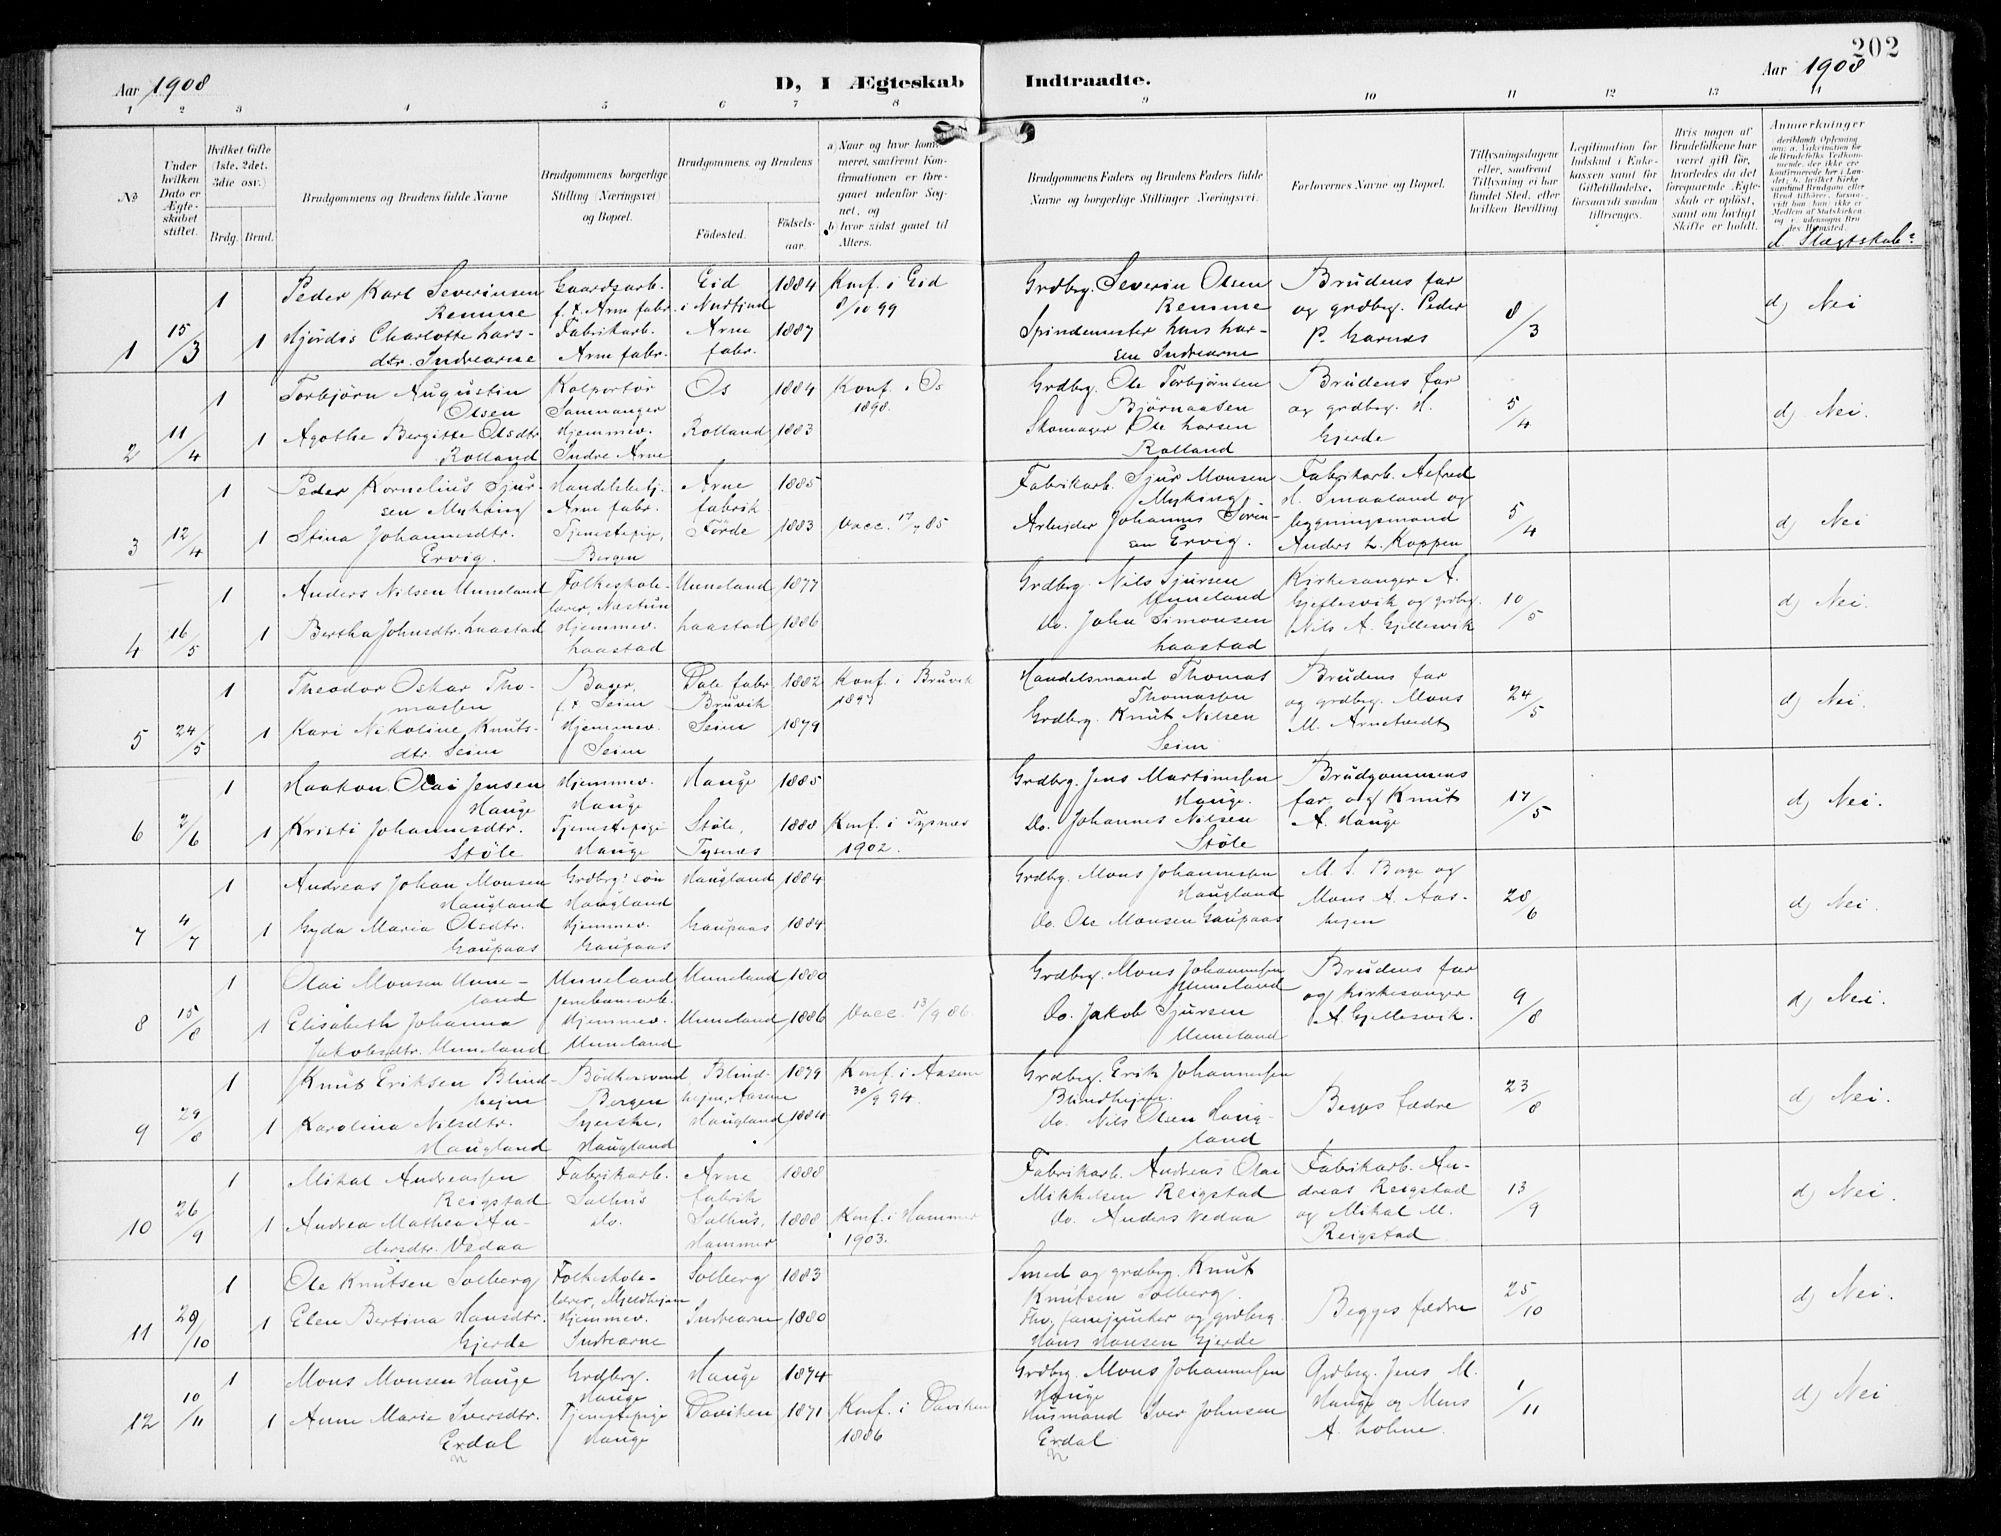 202
Aar 1908
D, I Ægteskab Indtraadte.
Aar 1908
1 2 3 4 5 6 7 8 9 10 11 12 13 14
№
Under hvilken Dato er Ægteskabet stiftet.
Hvilket Gifte (1ste, 2det, 3die osv.)
Brdg. Brud.
Brudgommens og Brudens fulde Navne
Brudgommens borgerlige Stilling (Næringsvei) og Bopæl.
Brudgommens og Brudens
Fødested.
Fødselsaar.
a) Naar og hvor kommeret, saafremt Konfirmationen er foregaaet udenfor Sognet, og
b) hvor sidst gaaet til Alters.
Brudgommens Faders og Brudens Faders fulde Navne og borgerlige Stillinger Næringsvei.
Forlovernes Navne og Bopæl.
Tillysningsdagene eller, saafremt Tillysning ei har fundet Sted, efter hvilken Bevilling
Legitimation for Indskud i Enkekassen samt for Giftetilladelse, forsaavidt saadan tiltrænges.
Hvis nogen af Brudefolkene har været gift før, hvorledes da det foregaaende Ægteskab er opløst, samt om lovligt Skifte er holdt.
Anmerkninger
d Slægtskab?
1 15/3 1 Peder Karl Severinsen Remme Gaardsarb. f. t. Arne fabr. Eid i Nordfjord 1884 Konf. i Eid 8/10 99 Grdbrg. Severin Olsen Remme Brudens far og grdbrg. Peder P. Garnes 8/3 d) Nei
1 Hjørdis Charlotte Larsdtr. Indrearne Fabrikarb. Arne fabr. Arne fabr. 1887 Spindemester Lars Larsen Indrearne
2 11/4 1 Torbjørn Augustin Olsen Kolportør Samnanger Os 1884 Konf. i Os 1898. Grdbrg. Ole Torbjørnsen Bjørnaasen Brudens far og grdbrg. H. Gjerde 5/4 d) Nei.
1 Agathe Bergitte Olsdtr Rolland Hjemmev. Indre Arne Rolland 1883 Skomager Ole Larsen Rolland
3 12/4 1 Peder Kornelius Sjursen Myking Handelsbetj. Arne fabr. Arne fabrik 1885 Fabrikarb. Sjur Monsen Myking Fabrikarb. Alfred H. Smaaland og bygningsmand Anders L. Koppen 5/4 d) Nei
1 Stina Johannesdtr. Ervig. Tjenestepige, Bergen Førde 1883 Arbeider Johannes Sørensen Ervig.
4 16/5 1 Anders Nilsen Unneland Folkeskolelærer, Næstun Unneland 1877 Grdbrg. Nils Sjursen Unneland Kirkesanger A. Gjellesvik og grdbrg. Nils A. Gjellesvik 10/5 d) Nei.
1 Bertha Johnsdtr. Laastad Hjemmev. Laastad Laastad 1886 Do. John Simonsen Laastad
5 24/5 1 Theodor Oskar Thomassen Bager, f. t. Seim Dale fabr Bruvik 1882 Konf. i Bruvik 1897 Handelsmand Thomas Thomassen Brudens far og grdbrg. Mons M. Arnetvedt 24/5 d) Nei.
1 Kari Nikoline Knutsdtr Seim Hjemmev. Seim Seim 1879 Grdbrg. Knut Nilsen Seim
6 2/6 1 Haakon Olai Jensen Hauge Hjemmev. Hauge Hauge 1885 Grdbrg. Jens Martinussen Hauge. Brudgommens far og Knut A. Hauge 17/5 d) Nei.
1 Kristi Johannesdtr. Støle Tjenestepige Hauge Støle, Tysnæs 1888 Konf. i Tysnæs 1902. Do. Johannes Nilsen Støle
7 4/7 1 Andreas Johan Monsen Haugland Grdbrg. søn Haugland Haugland 1884 Grdbrg. Mons Johannessen Haugland M. S. Borge og Mons A. Aashejen 28/6 d) Nei.
1 Gyda Maria Olsdtr. Gaupaas Hjemmev. Gaupaas Gaupaas 1884 Do. Ole Monsen Gaupaas
8 15/8 1 Olai Monsen Unneland Unneland jernbanearb. Unneland 1880 Grdbrg. Mons Johannessen Unneland Brudens far og kirkesanger A. Gjellesvik. 9/8 d) Nei.
1 Elisabeth Johanna Jakobsdtr. Unneland Hjemmev. Unneland Unneland 1886 Vacc. 13/9 86. Do. Jakob Sjursen Unneland
9 29/8 1 Knut Eriksen Blindhejm Bødkersvend Bergen Blindhejm, Aasem 1879 Konf. i Aasem 30/9 94. Grdbrg. Erik Johannessen Blindhejm. Begges fædre 23/8 d) Nei.
1 Karolina Nilsdtr. Haugland Syerske, Haugland Haugland 1884 Do. Nils Olsen Haugland
10 26/9 1 Mikal Andreassen Reigstad Fabrikarb. Salhus Arne fabrik 1888 Fabrikarb. Andreas Olai Mikkelsen Reigstad Fabrikarb. Andreas Reigstad og Mikal M. Reigstad 13/9 d) Nei.
1 Andrea Mathea Andersdtr. Vedaa do. Salhus, Hammer 1888 Konf. i Hammer 1903. Do. Anders Vedaa
11 29/10 1 Ole Knutsen Solberg Folkeskolelærer, Mjeldhejm Solberg 1883 Smed og grdbrg. Knut Knutsen Solberg. Begges fædre 25/10 d) Nei.
1 Elen Bertina Hansdtr. Gjerde Hjemmev. Indrearne Indrearne 1880 Fhv. fanejunker og grdbrg. Hans Hansen Gjerde
12 10/11 1 Mons Monsen Hauge Grdbrg. Hauge Hauge 1874 Grdbrg. Mons Johannessen Hauge Grdbrg. Jens M. Hauge og Mons A. Lohne. 1/11 d) Nei
1 Anne Marie Iversdtr. Erdal Tjenestepige Hauge Daviken 1871 Konf. i Daviken 1886 Husmand Iver Johnsen Erdal